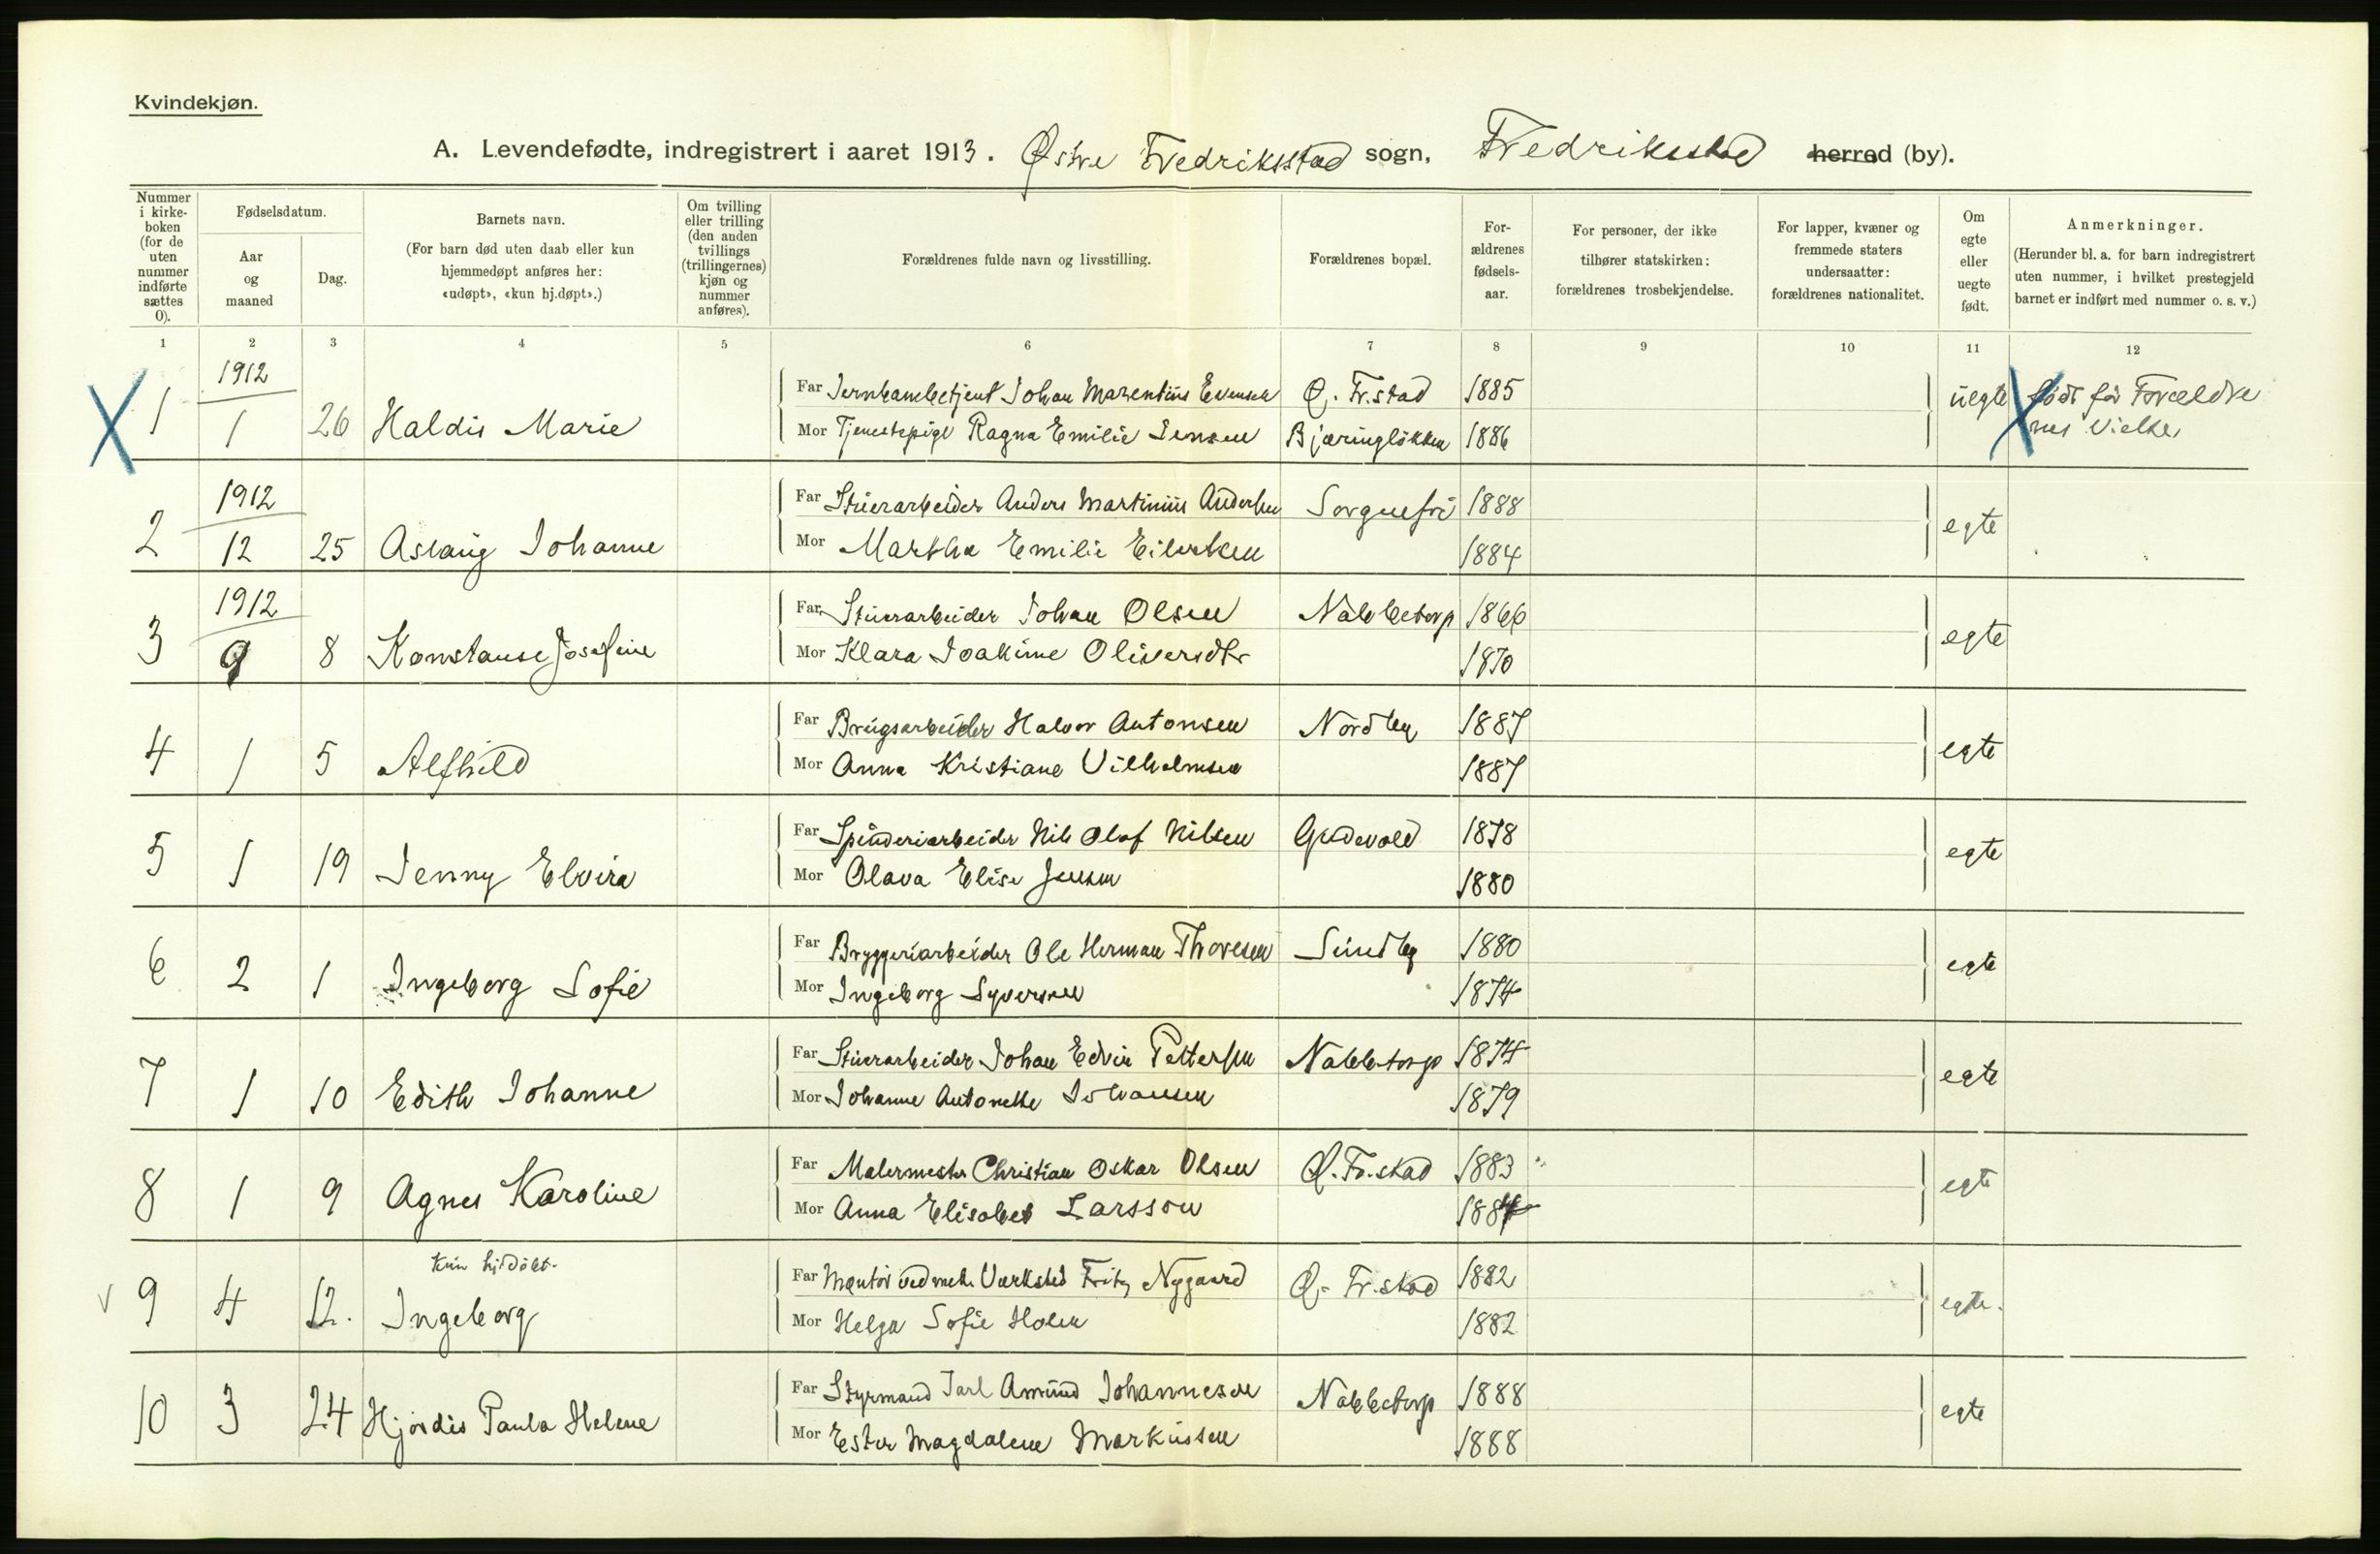 Kvindekjøn.
A. Levendefødte, indregistrert i aaret 1913. Østre Fredriksstad sogn, Fredriksstad herred (by).
Nummer i kirke-boken (for de uten nummer indførte sættes 0).
Fødselsdatum.
Aar og maaned
Dag.
Barnets navn.
(For barn død uten daab eller kun hjemmedøpt anføres her: «udøpt», «kun hj.døpt».)
Om tvilling eller trilling (den anden tvillings (trillingernes) kjøn og nummer anføres).
Forældrenes fulde navn og livsstilling.
Forældrenes bopæl.
For-ældrenes fødsels-aar.
For personer, der ikke tilhører statskirken: forældrenes trosbekjendelse.
For lapper, kvæner og fremmede staters undersaatter: forældrenes nationalitet.
Om egte eller uegte født.
Anmerkninger.
(Herunder bl. a. for barn indregistrert uten nummer, i hvilket prestegjeld barnet er indført med nummer o. s. v.)
1 2 3 4 5 6 7 8 9 10 11 12
X 1 1912 1 26 Haldis Marie
Far Jernbanebetjent Johan Marentius Evensen Ø. Fr.stad 1885
Mor Tjenestepige Ragna Emilie Jensen Bjæringløkken 1886
uegte X født før Forældre
nes Vielse
2 1912 12 25 Aslaug Johanne
Far Stuerarbeider Anders Martinius Andersen Sorgenfri 1888
Mor Martha Emilie Eilertsen 1884
egte
3 1912 9 8 Konstanse Josefine
Far Stuerarbeider Johan Olsen Nabbetorp 1866
Mor Klara Joakime Oliversdtr 1870
egte
4 1 5 Alfhild
Far Brugsarbeider Halvor Antonsen Nordby 1887
Mor Anna Kristiane Vilhelmsen 1887
egte
5 1 19 Jenny Elvira
Far Spinderiarbeider Nils Olof Nilsen Gudevold 1878
Mor Olava Elise Jensen 1880
egte
6 2 1 Ingeborg Sofie
Far Bryggeriarbeider Ole Herman Thoresen Sundby 1880
Mor Ingeborg Syversen 1874
egte
7 1 10 Edith Johanne
Far Stuerarbeider Johan Edvin Pettersen Nabbetorp 1874
Mor Johanne Antonette Johansen 1879
egte
8 1 9 Agnes Karoline
Far Malermester Christian Oskar Olsen Ø. Fr.stad 1883
Mor Anna Elisabet Larsson 1884
egte
kun hjdöbt.
9 4 12. Ingeborg
Far Montör ved mek. Værksted Fritz Nygaard Ø. Fr.stad 1882
Mor Helga Sofie Holen 1882
egte.
10 3 24 Hjørdis Paula Helene
Far Styrmand Jarl Amund Johannesen Nabbetorp 1888
Mor Ester Magdalene Markussen 1888
egte